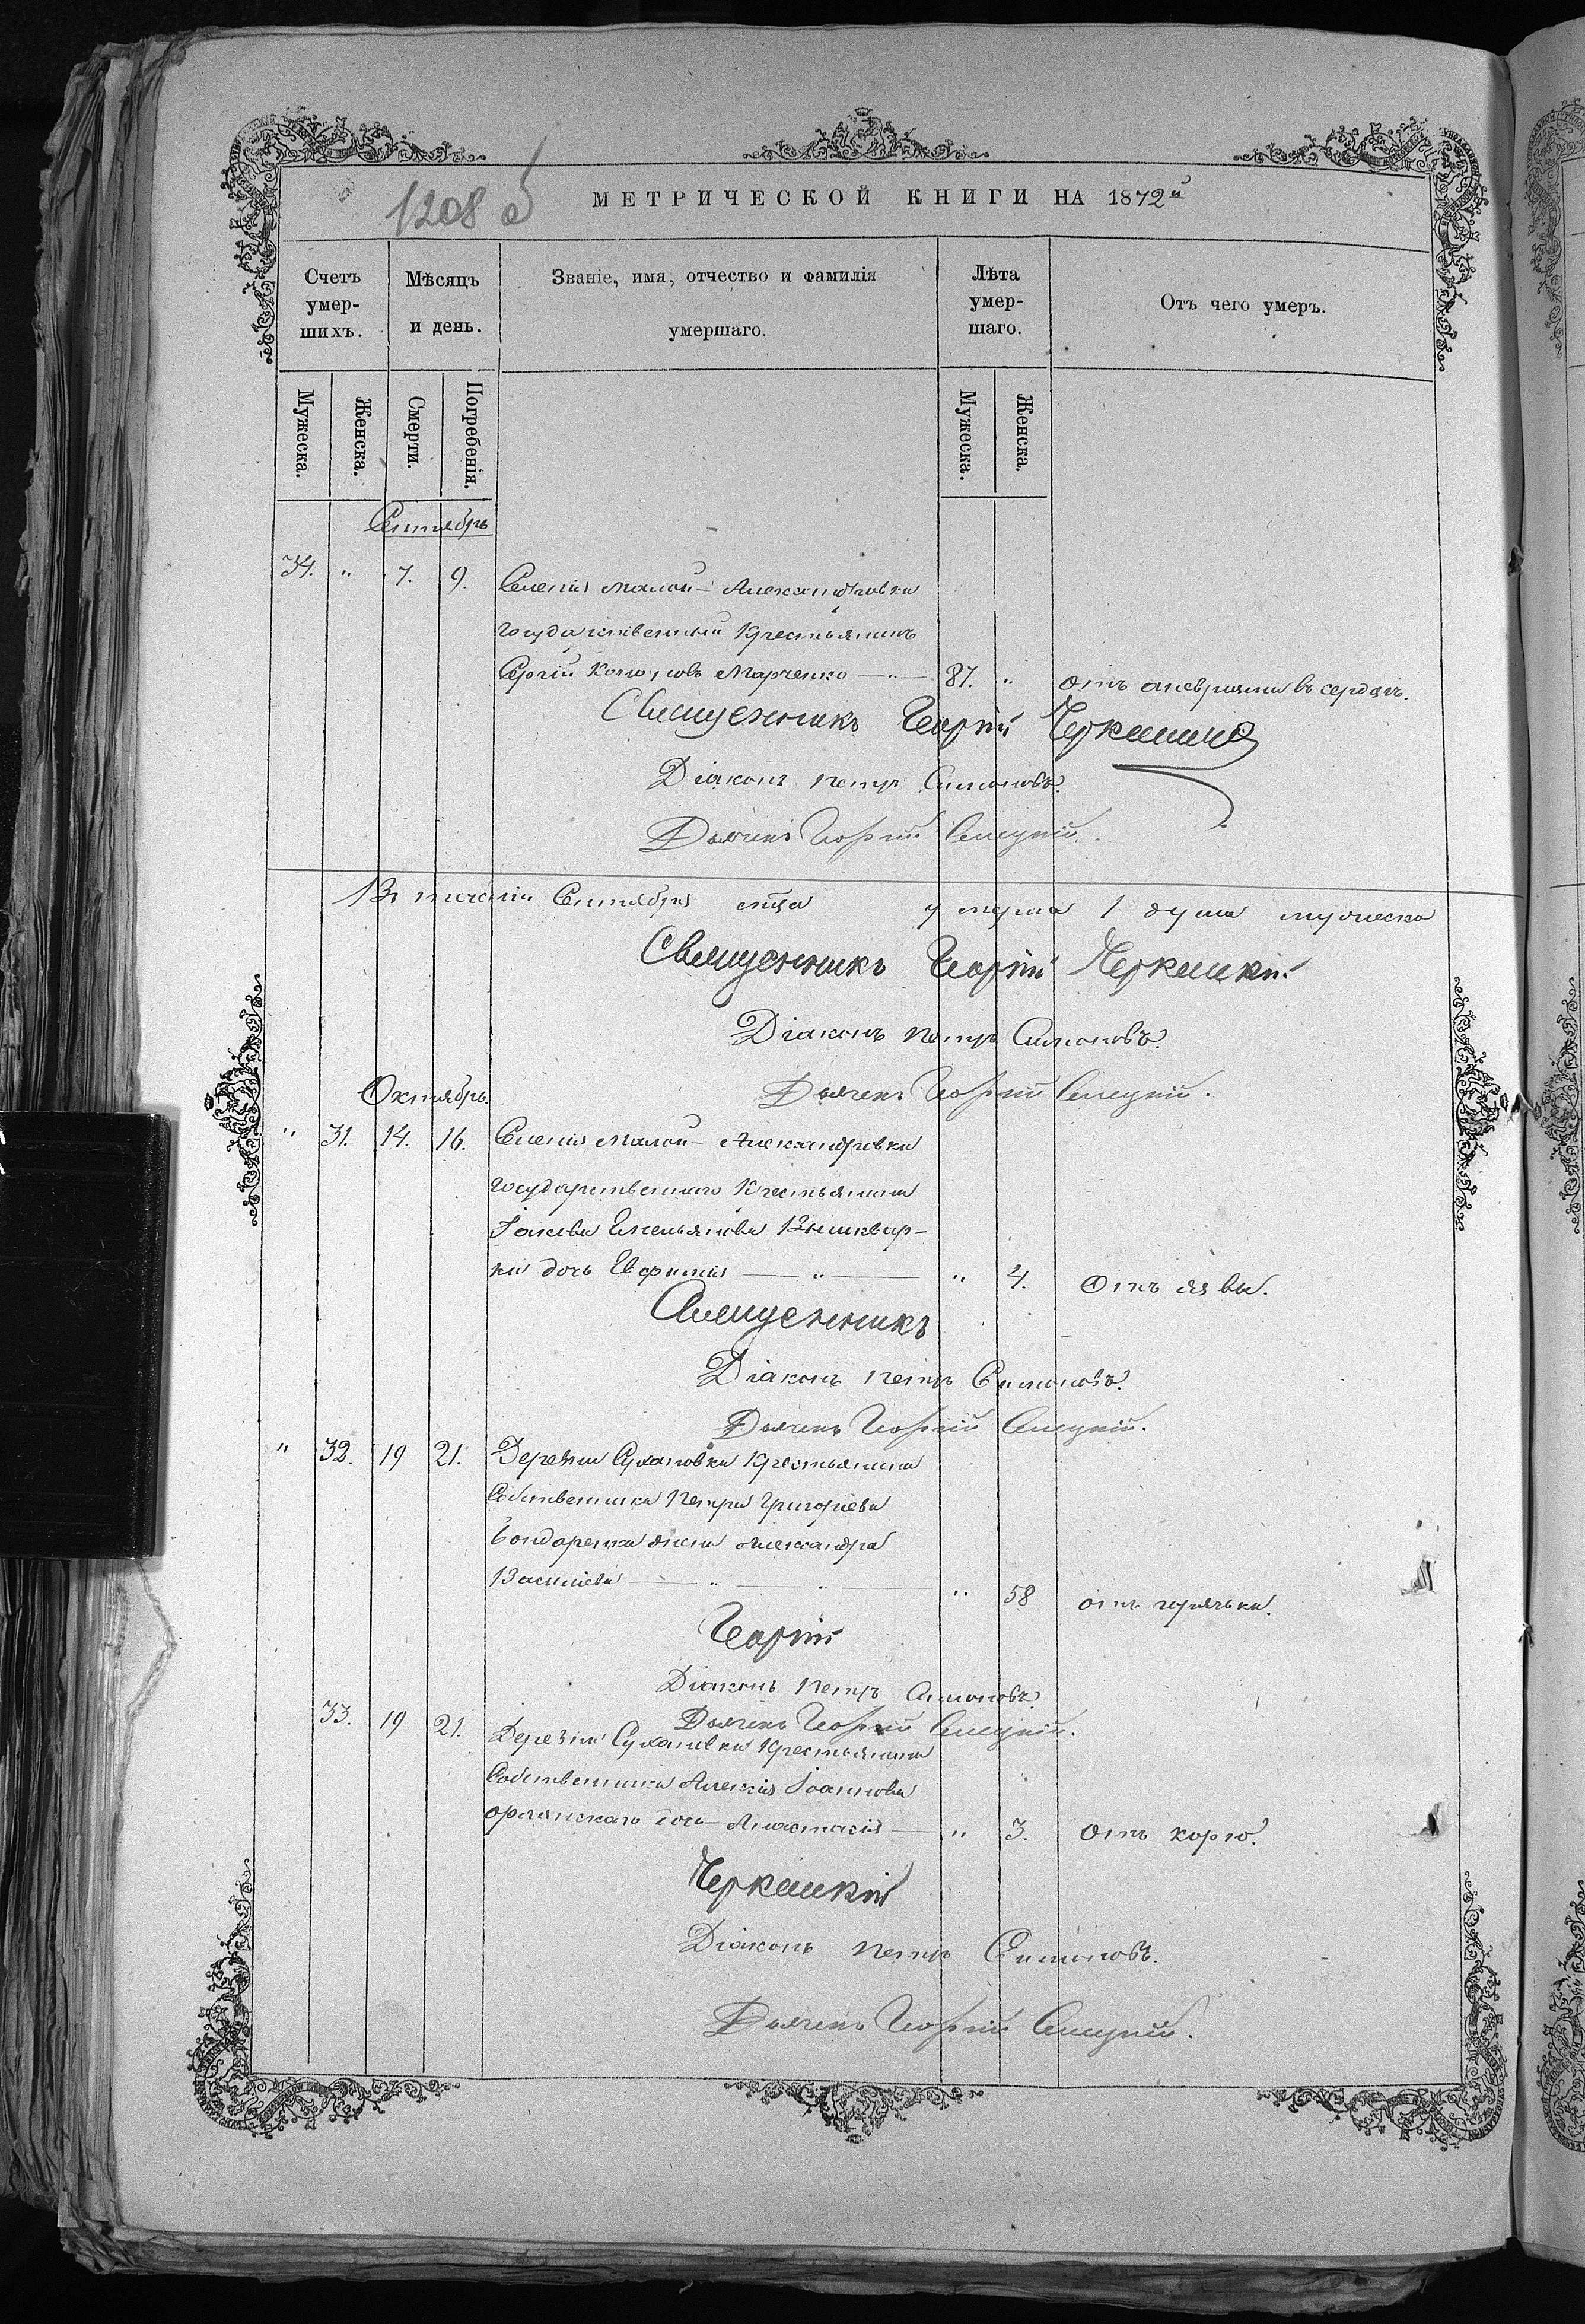 1208 об
МЕТРИЧЕСКОЙ КНИГИ НА 1872й
Счетъ умер-шихъ.
Мѣсяцъ и день.
Званіе, имя, отчество и фамилія умершаго.
Лѣта умер-шаго.
Отъ чего умеръ.
Мужеска.
Женска.
Смерти.
Погребенія.
Мужеска.
Женска.
Сентябрь
34. " 7. 9. Селенія Малой-Александровки
государственный Крестьянинъ
Сергій Марченко — " — 87. " отъ аневризма въ сердцѣ.
Священникъ Георгій
Діаконъ Петръ Симоновъ.
Дьячекъ Георгій
Въ теченіи Сентября м-ца умерла 1 душа мужеска
Священникъ Георгій
Діаконъ Петръ Симоновъ.
Дьячекъ Георгій
Октябрь.
" 31. 14. 16. Селенія Малой-Александровки
государственнаго Крестьянина
Іакова Емельянова
ки дочь Евфимія — " — " 4. Отъ язвы.
Священникъ
Діаконъ Петръ Симоновъ.
Дьячекъ Георгій
" 32. 19 21. Деревни Сухановки Крестьянина
Собственника Петра Григоріева
Бондаренка жена Александра
Василіева — " — " — " 58 отъ горячки.
Георгій
Діаконъ Петръ Симоновъ.
Дьячекъ Георгій
33. 19 21. Деревни Сухановки Крестьянина
Собственника Алексія Іоаннова
дочь Анастасія — " 3. Отъ корю.
Діаконъ Петръ Симоновъ.
Дьячекъ Георгій